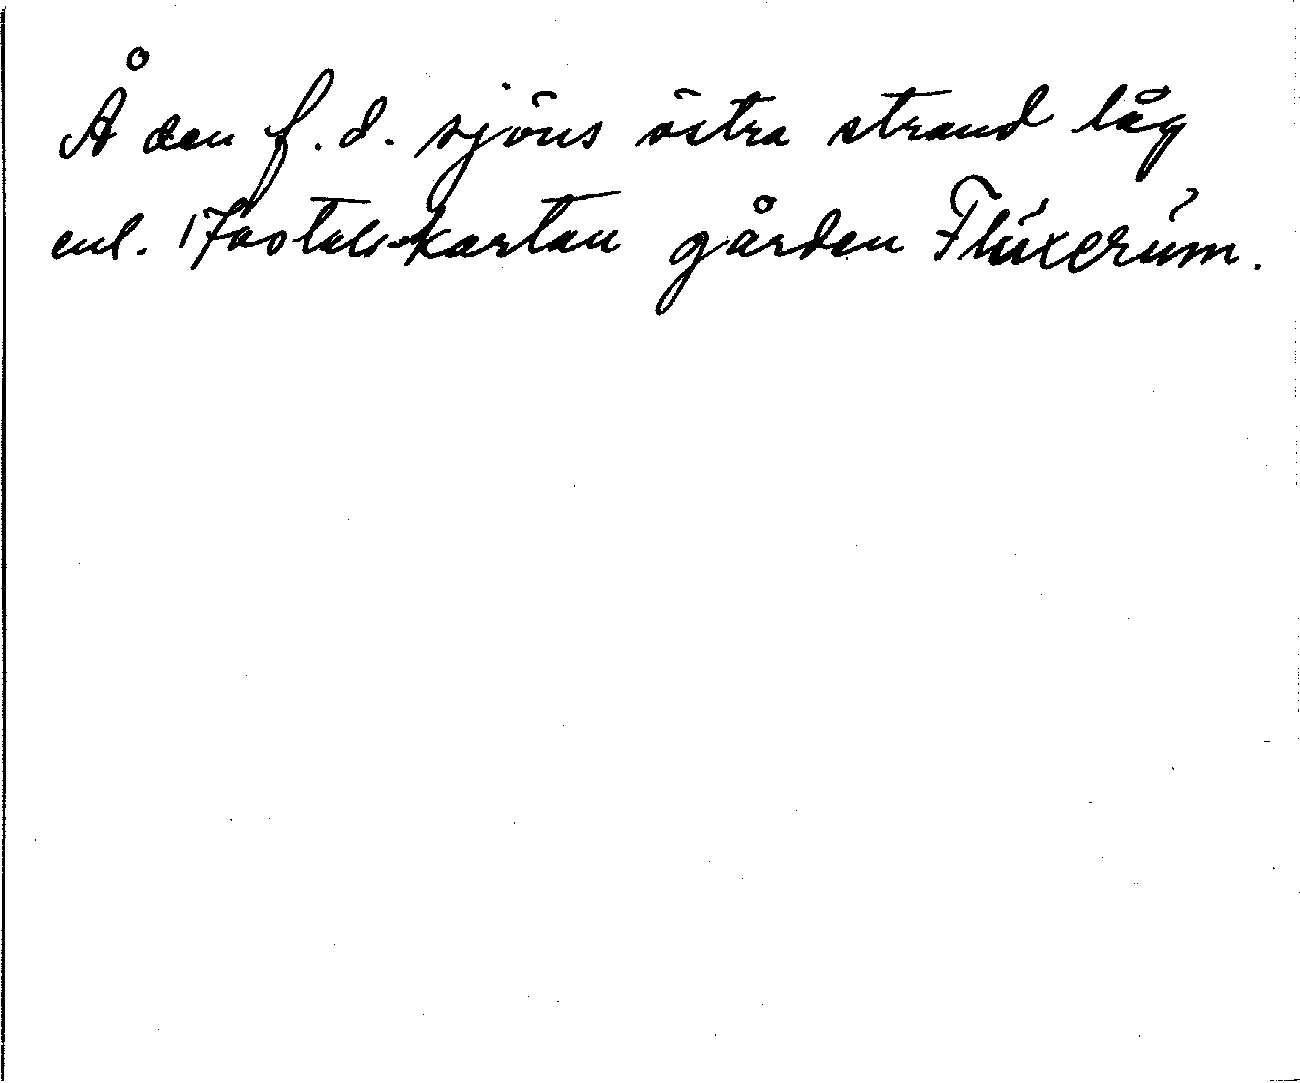 Å den f.d. sjöns östra strand låg
enl. 1700 tals-kartan gården Fluxerum.